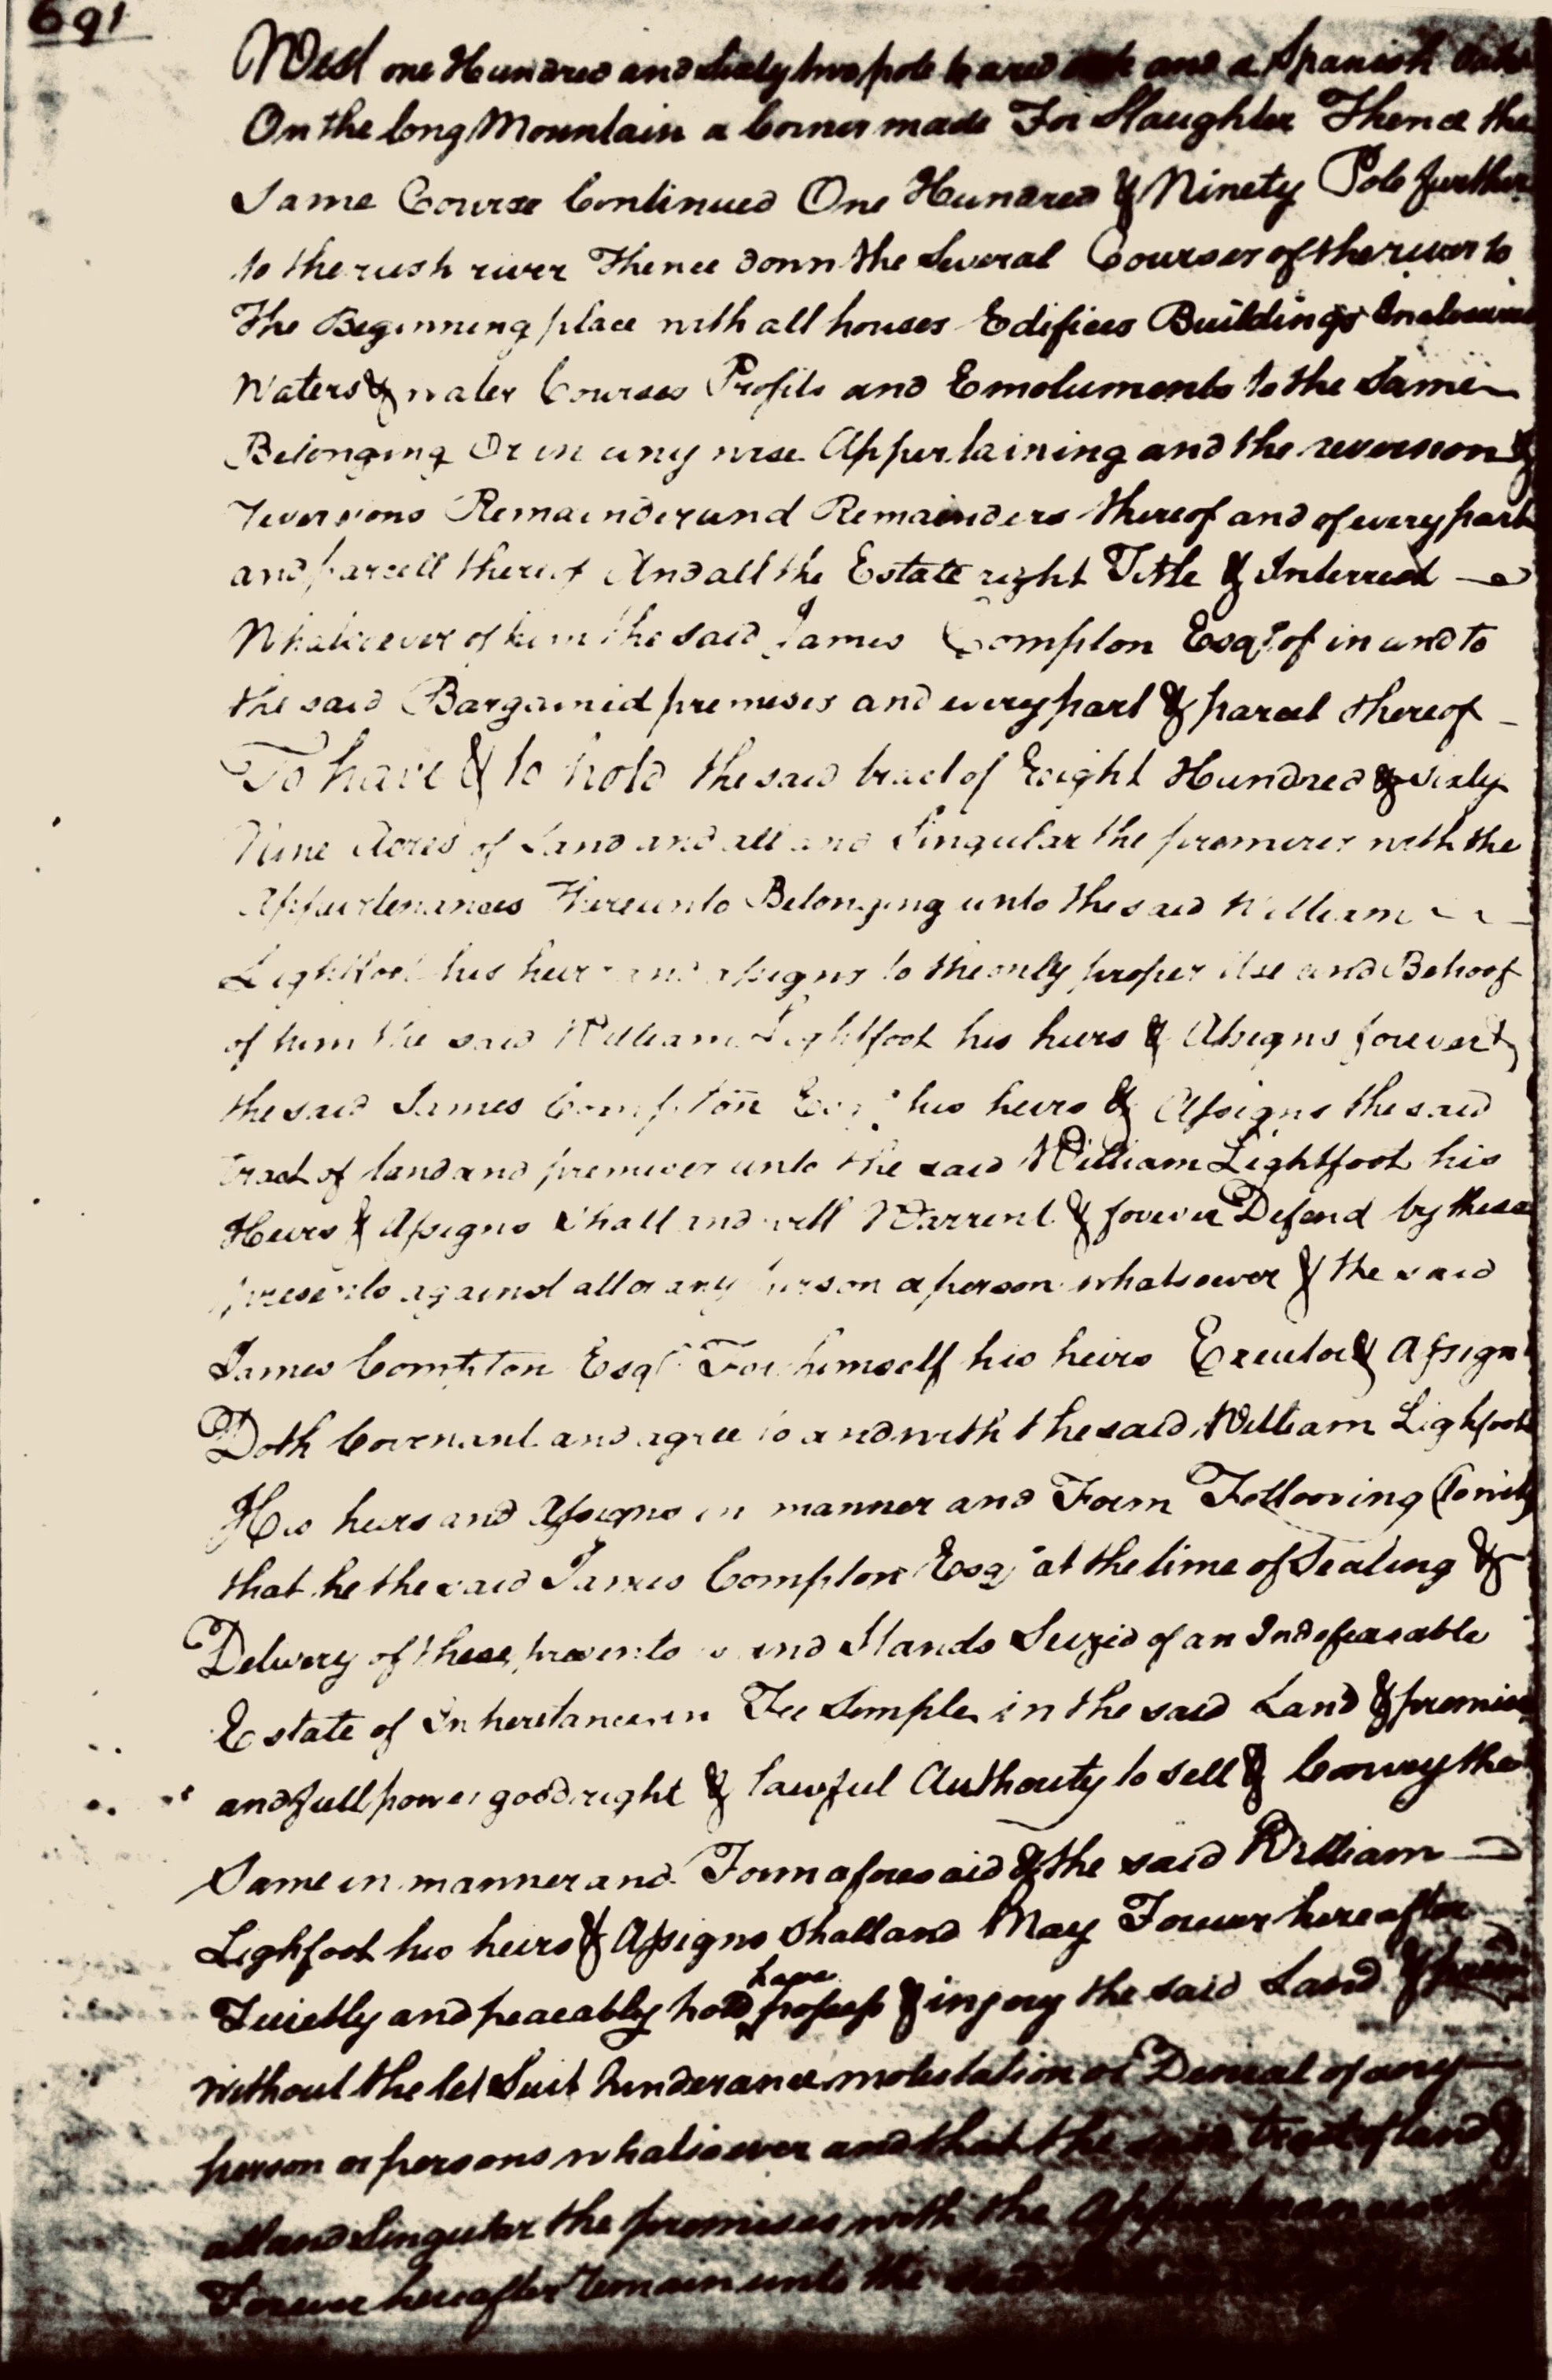 691
West one Hundred and Sixty two pole to a red oak and a Spanish Oake
On the long Mountain a Corner made For Slaughter Thence the
Same Course Continued One Hundred & Ninety Pole further
to the rush river Thence down the Several Courses of the river to
The Beginning place with all houses Edifices Buildings
Waters & water Courses Profits and Emoluments to the Same
Belonging Or in any wise Appertaining and the reversion &
reversions Remainder and Remainders thereof and of every part
and parcell thereof And all the Estate right Title & Interrest
Whatsoever of him the said James Compton Esqr of in and to
the said Bargained premises and every part & parcel thereof
To have & to hold the said tract of Eeight Hundred & sixty
Nine Acres of Land and all and Singular the premises with the
Appurtenances Thereunto Belonging unto the said William
Lightfoot his heirs and assigns to the only proper use and Behoof
of him the said William Lightfoot his heirs & Assigns forever &
the said James Compton Esqr his heirs & Assigns the said
tract of land and premises unto the said William Lightfoot his
Heirs & Assigns Shall and will Warrent & forever Defend by these
presents against all or any person or person whatsoever & the said
James Compton Esqr For himself his heirs Exeutor & Assigns
Doth Covenant and agree to and with the said William Lighfoot
His heirs and Assigns in manner and Form Following (to wit)
that he the said James Compton Esqr at the time of Sealing &
Delivery of these presents is and Stands Seized of an Indefeasable
Estate of Inheritance in Fee Semple in the said Land & premises
and full power good right & lawful Authority to sell & Convey the
Same in manner and Form aforesaid & the said William
Lighfoot his heirs & Assigns Shall and May Forever hereafter
Quietly and peaceably hold have possess & injoy the said Land & premises
without the let Suit hinderance molestation or Denial of any
person or persons whatsoever and that the said tract of land &
all and Singular the premises with the Appurtenances
Forever hereafter remain unto the said